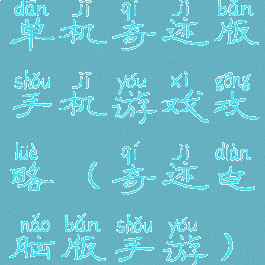 dān jī qí jì bǎn
单机奇迹版
shǒu jī yóu xì gōng
手机游戏攻
lüè qí jì diàn
略(奇迹电
nǎo bǎn shǒu yóu
脑版手游)